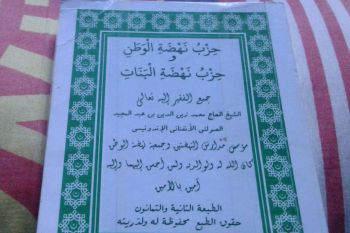 حِزْبُ نَهْضَةِ الْوَطَنِ
و
حِزْبُ نَهْضَةِ الْبَنَاتِ
جميع الفقير إليه تعالى
الشيخ الحاج محمد زين الدين بن عبد المجيد
الأنفناني الإندونيسي
مؤسس مدارس النهضتين وجمعية نهضة الوطن
كان الله له ولوالديه ولمن أحسن إليهما وإليه
آمين يا أمين
الطبعة الثانية والثمانون
حقوق الطبع محفوظة له ولذريته